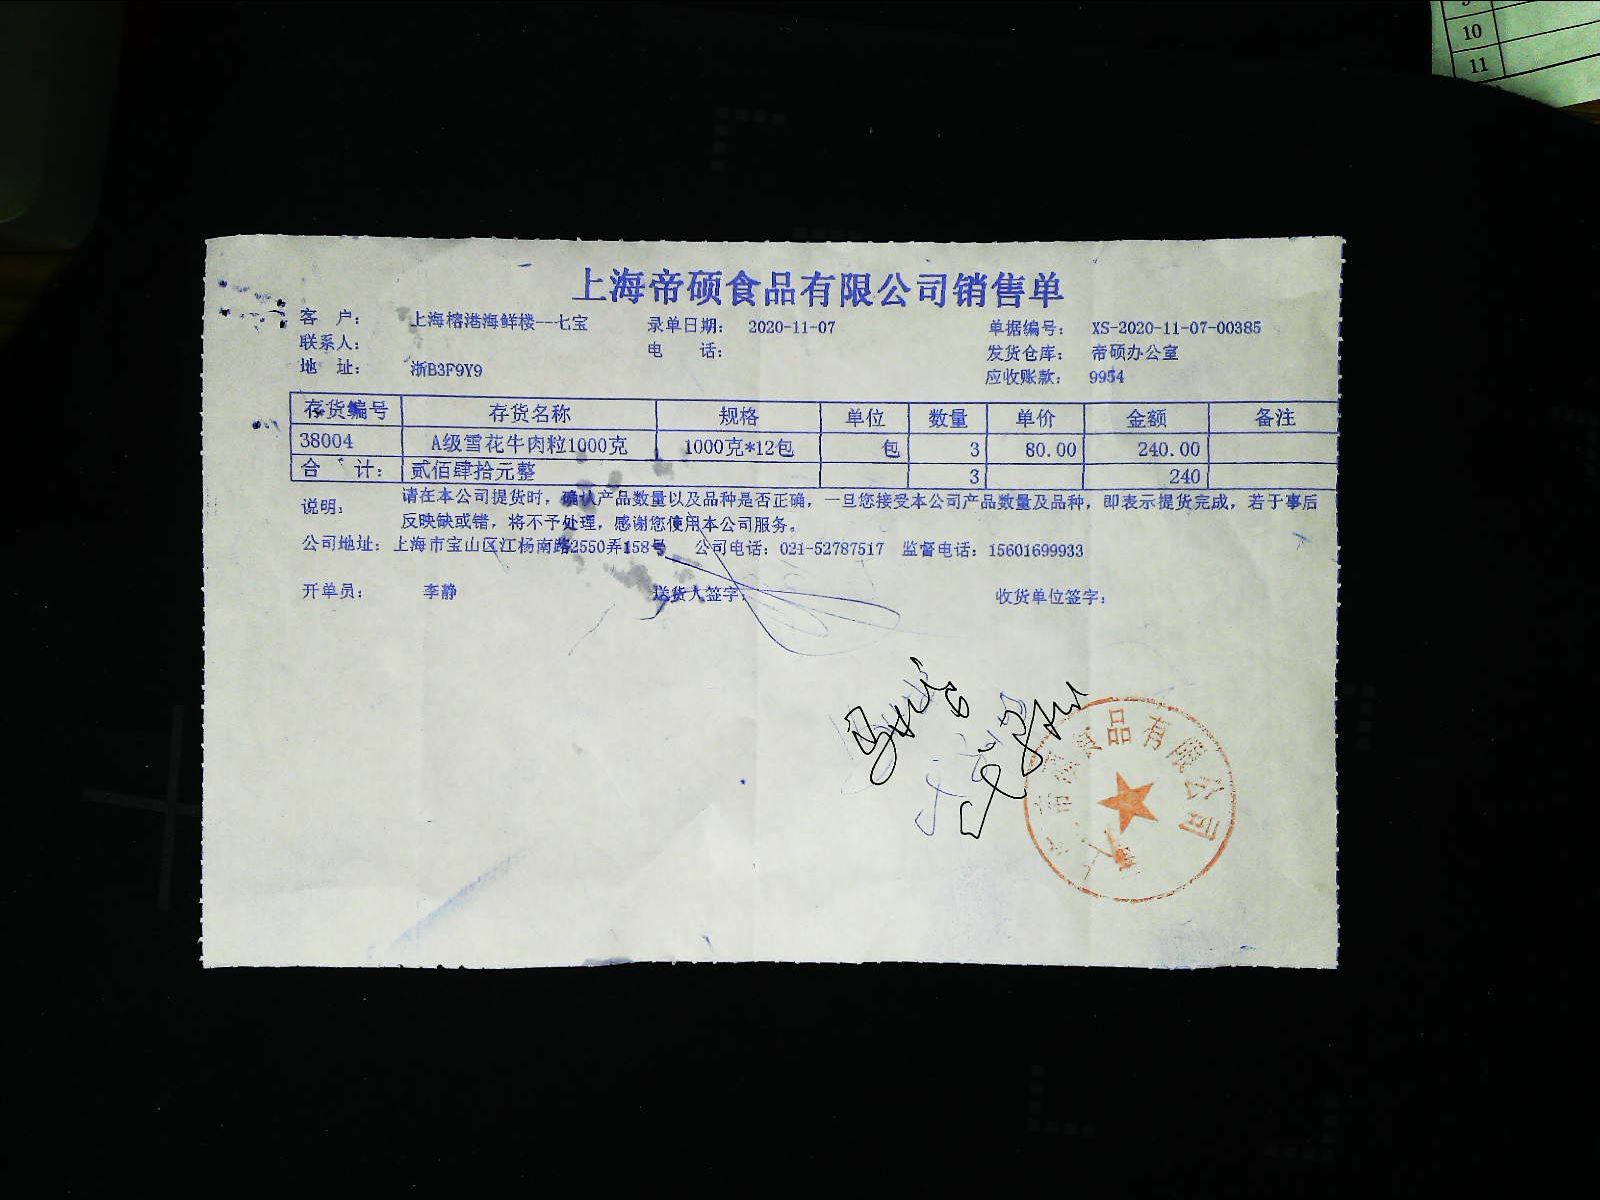 10
11
上海帝硕食品有限公司销售单
客 户： 上海榕港海鲜楼--七宝 录单日期： 2020-11-07 单据编号： XS-2020-11-07-00385
联系人： 电 话： 发货仓库： 帝硕办公室
地 址： 浙B3F9Y9 应收账款： 9954
存货编号 存货名称 规格 单位 数量 单价 金额 备注
38004 A级雪花牛肉粒1000克 1000克*12包 包 3 80.00 240.00
合 计： 贰佰肆拾元整 3 240
说明： 请在本公司提货时，确认产品数量以及品种是否正确，一旦您接受本公司产品数量及品种，即表示提货完成，若于事后
反映缺或错，将不予处理，感谢您使用本公司服务。
公司地址：上海市宝山区江杨南路2550弄158号 公司电话：021-52787517 监督电话：15601699933
开单员： 李静 送货人签字： 收货单位签字：
上海帝硕食品有限公司